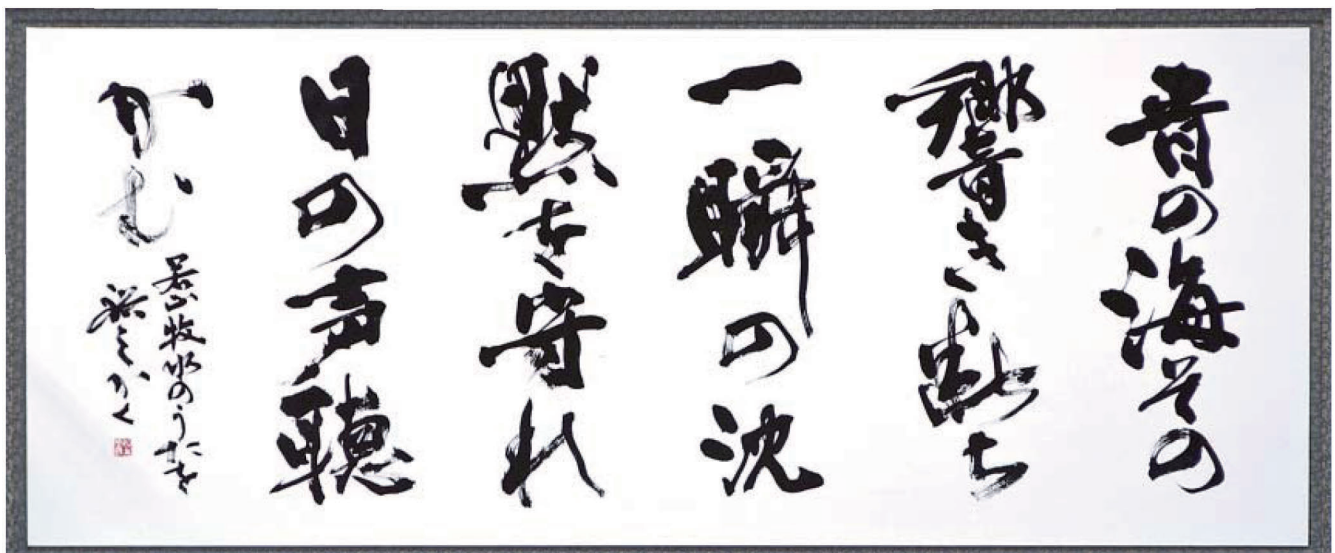 青の海その
響き断ち
一瞬の沈
黙を守れ
日の声聴
かむ
若山牧水のうたを
かく